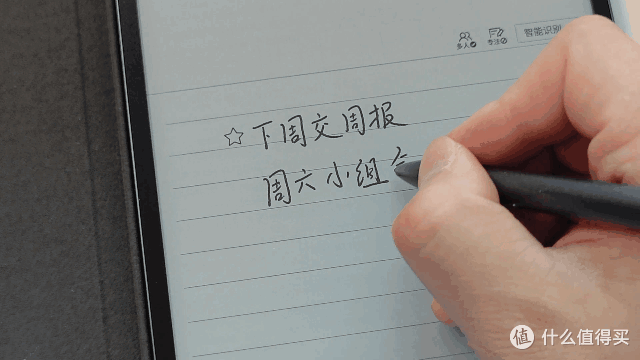 多人
专注
智能识别
☆下周交周报
周六小组
值 什么值得买